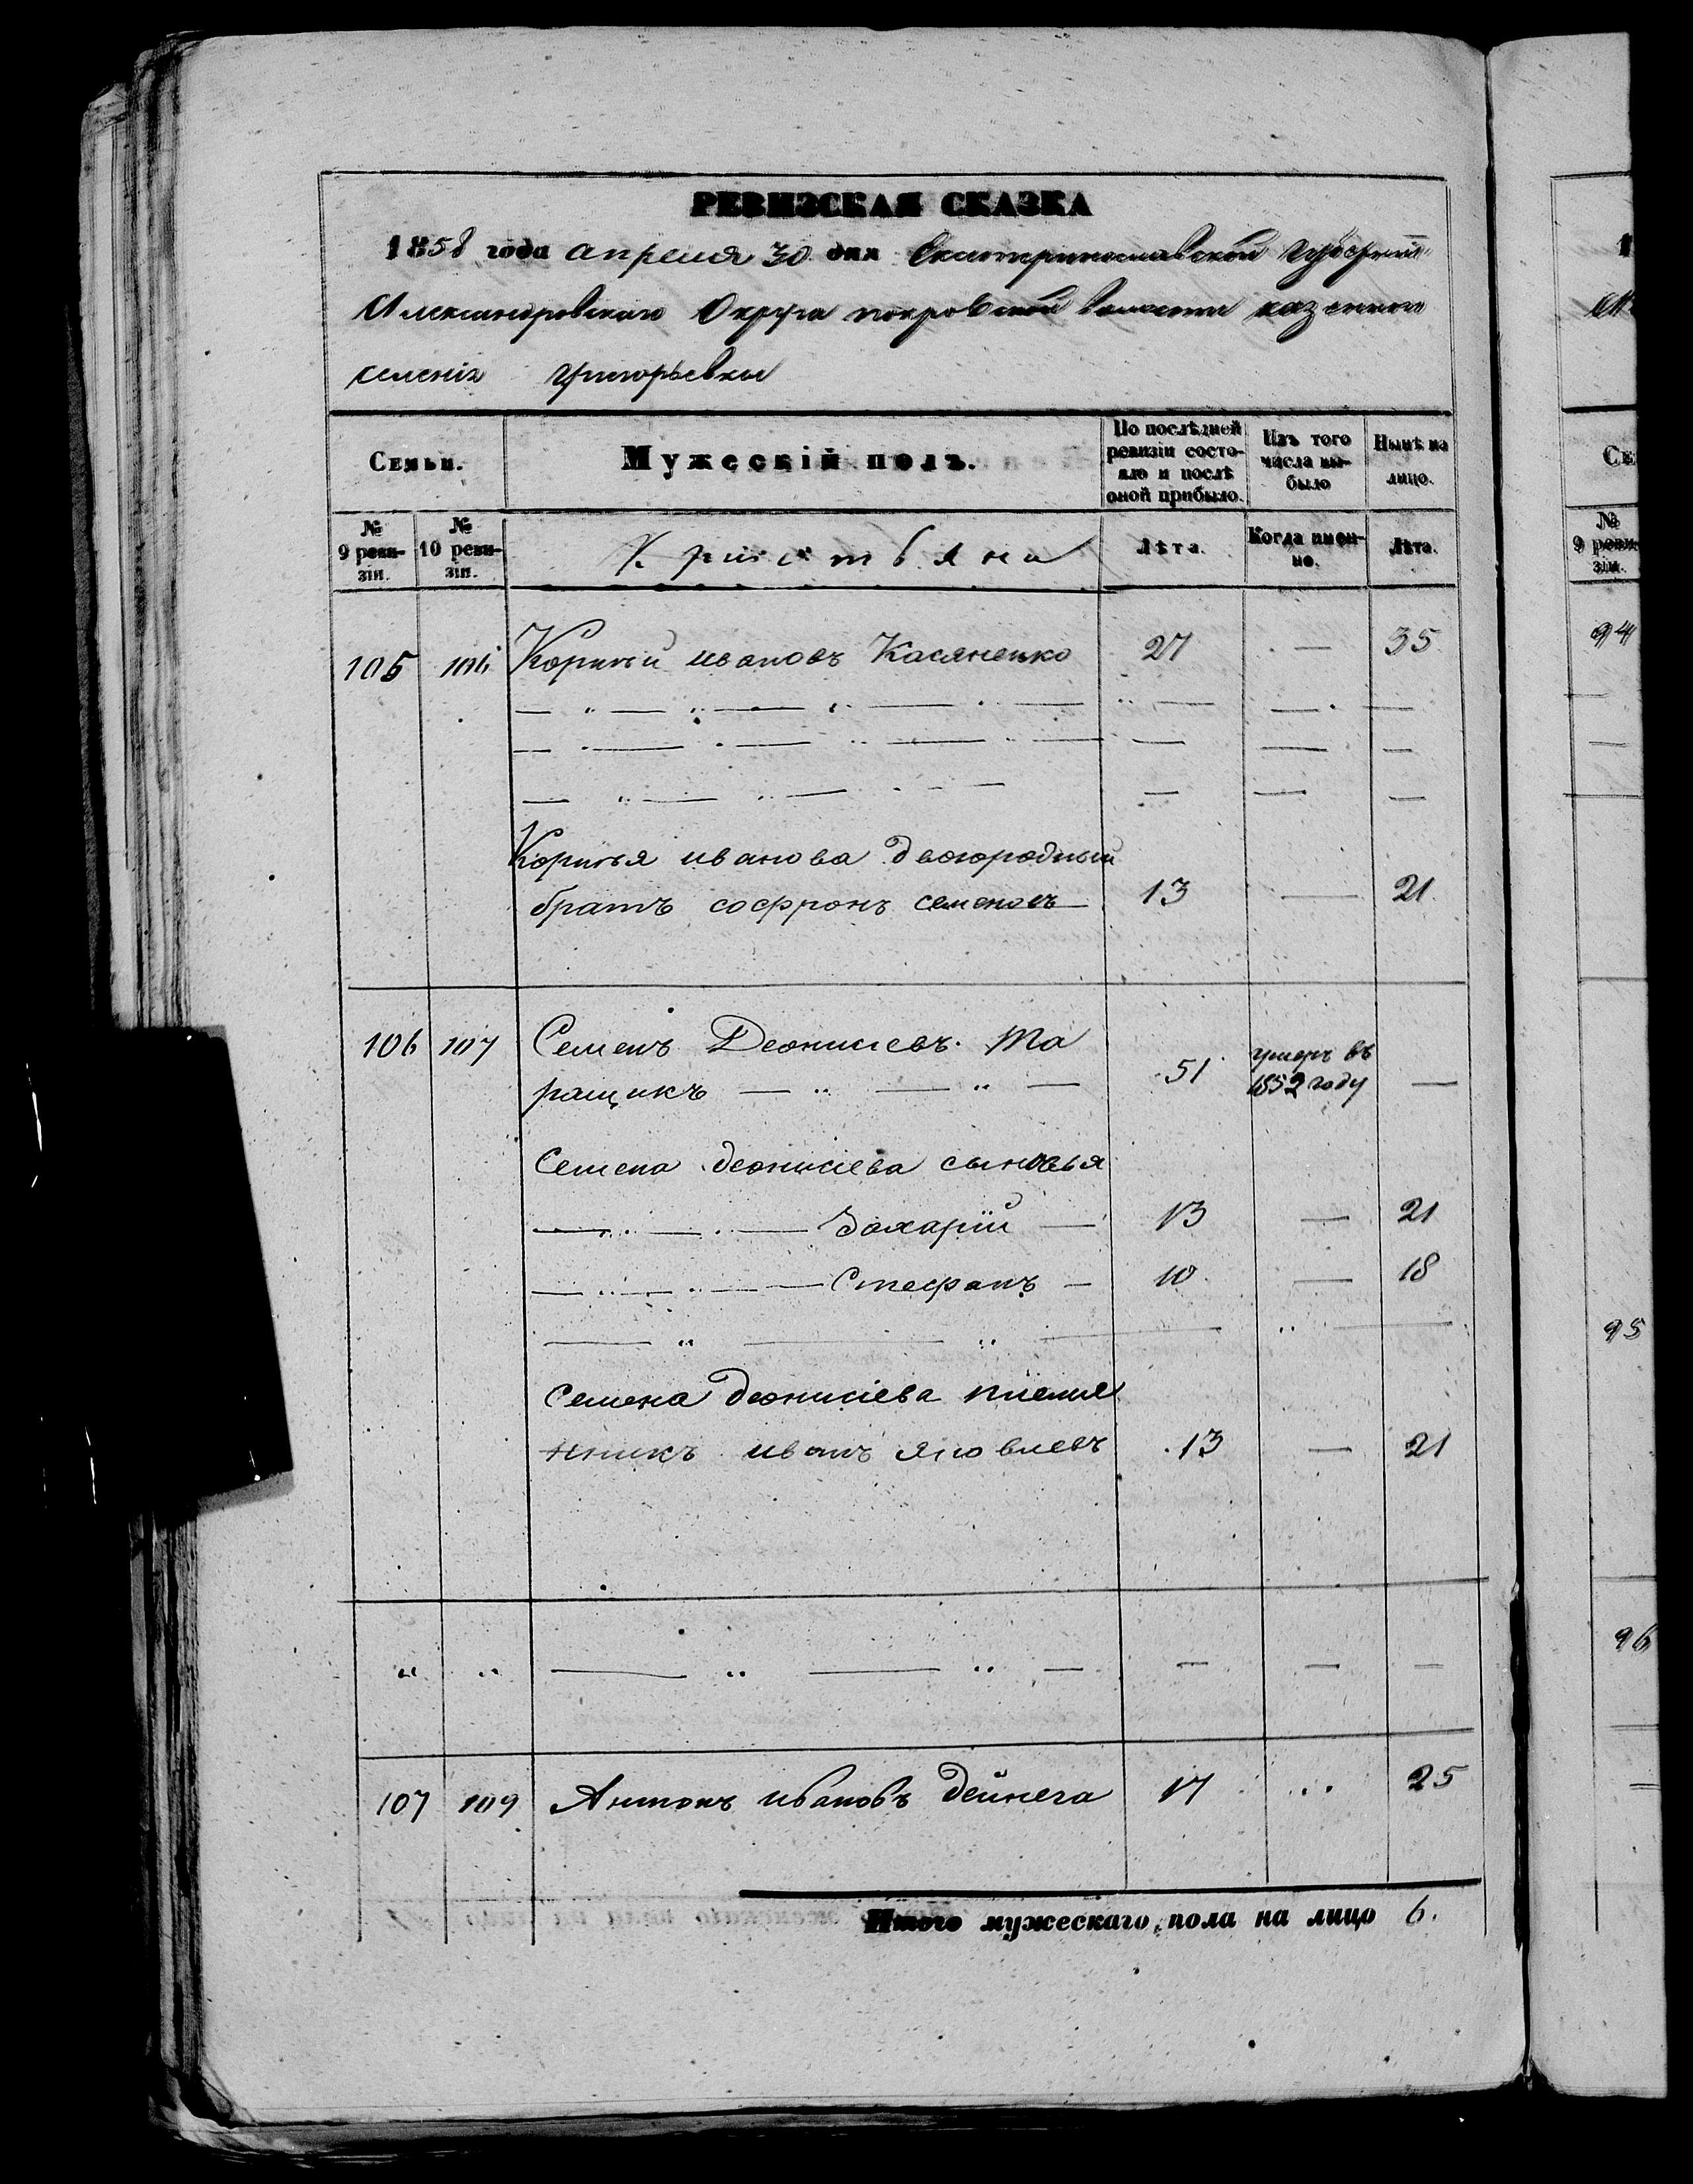 РЕВИЗСКАЯ СКАЗКА
1858 года апреля 30 дня Екатеринославской Губернии
Александровскаго Округа покровской волости казенного
селенія григорьевки
Семьи.
Мужескій полъ.
По послѣдней ревизіи состояло и послѣ оной прибыло.
Изъ того числа выбыло
Нынѣ на лицо.
№ 9 ревизіи.
№ 10 ревизіи.
Лѣта.
Когда именно.
Лѣта.
105 106 Корнѣй ивановъ Касяненко 27 — 35
Корнѣя иванова двоюродный
братъ софронъ семеновъ 13 — 21
106 107 Семенъ Деонисіевъ Та
ращикъ 51 умеръ въ 1852 году —
Семена деонисіева сыновья
Захарій — 13 — 21
Стефанъ — 10 — 18
Семена деонисіева племя
нникъ иванъ яковлевъ 13 — 21
„ „ — „ — „ — — — —
107 109 Антонъ ивановъ дейнега 17 „ 25
Итого мужескаго пола на лицо 6.
1
СЕ
№
9 реви
зіи.
94
95
96